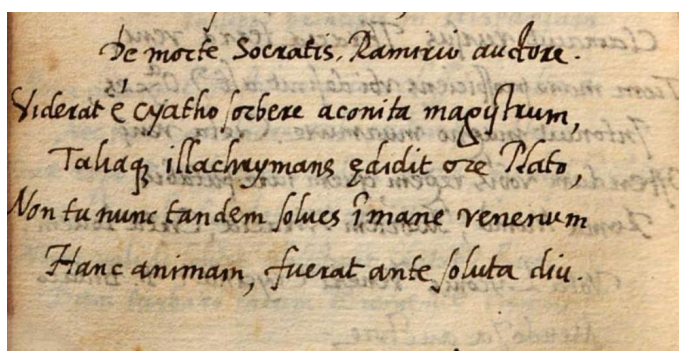 De morte Socratis, Ramirio auctore.
Viderat é cyatho sorbere aconita magistrum,
Taliaq; illachrymans ędidit ore Plato,
Non tu nunc tandem solues îmane venenum
Hanc animam, fuerat ante soluta diu.